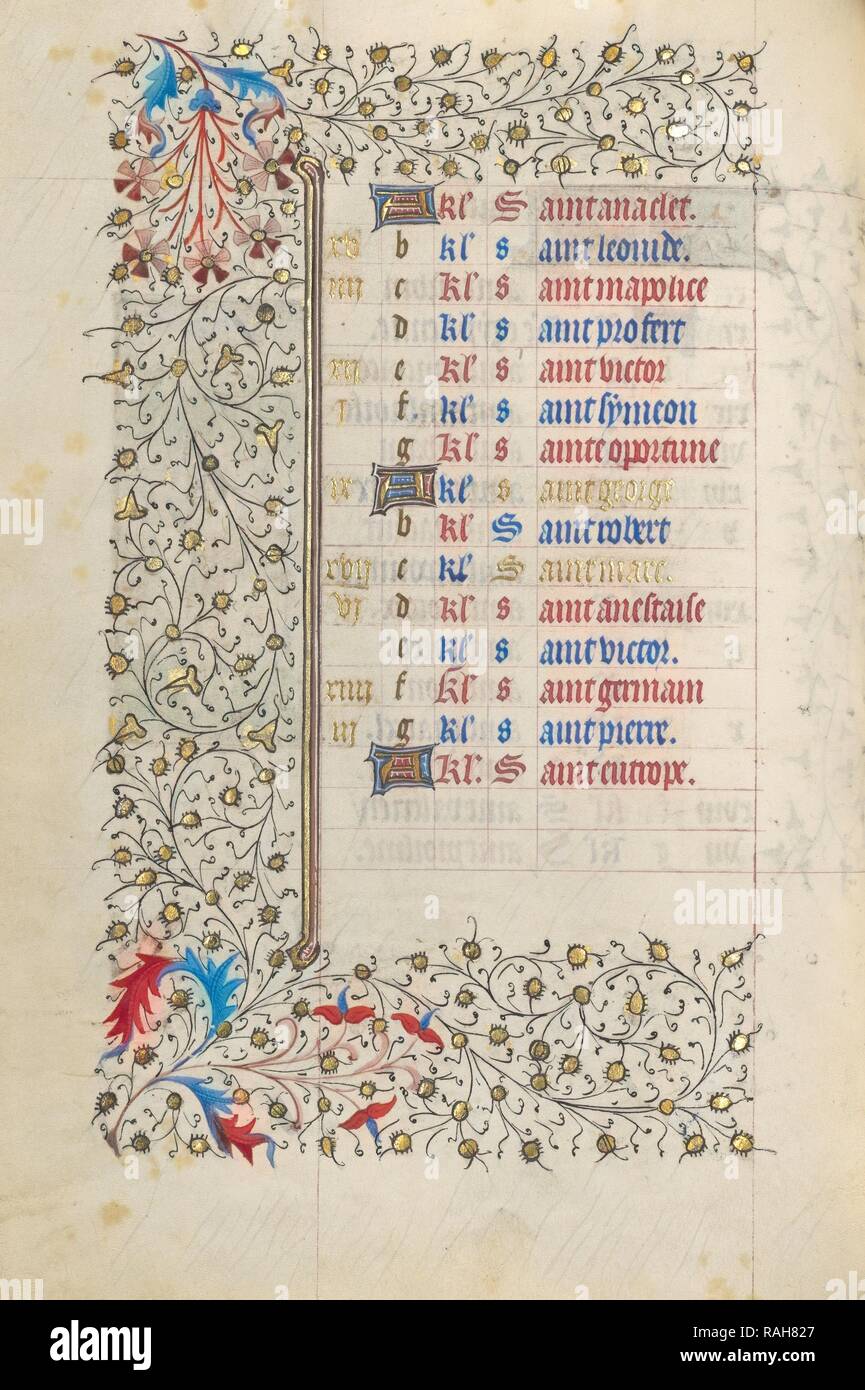 A kl' S aint anaclet.
xv b kl' s aint leonide.
iiij c kl' s aint mapolice
d kl' s aint profert
xij e kl' s aint victor
j f. kl' s aint symeon
g kl' s ainte oportune
ix A kl' s aint george
b kl' S aint robert
xvij c kl' S aint marc.
vj d kl' s aint anestaise
e kl' s aint victor.
xiiij f kl' s aint germain
iij g kl' s aint pierre.
A kl'. S aint eutrope.
alamy
alamy
Image ID: RAH827
www.alamy.com